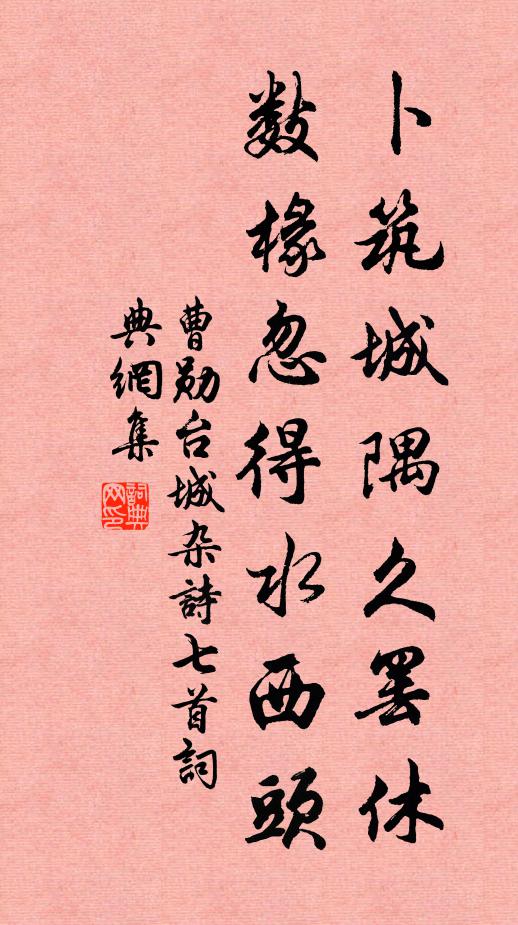 卜筑城隅久罢休
数椽忽得水西頭
曹勋台城杂詩七首詞
典網集
詞典网印